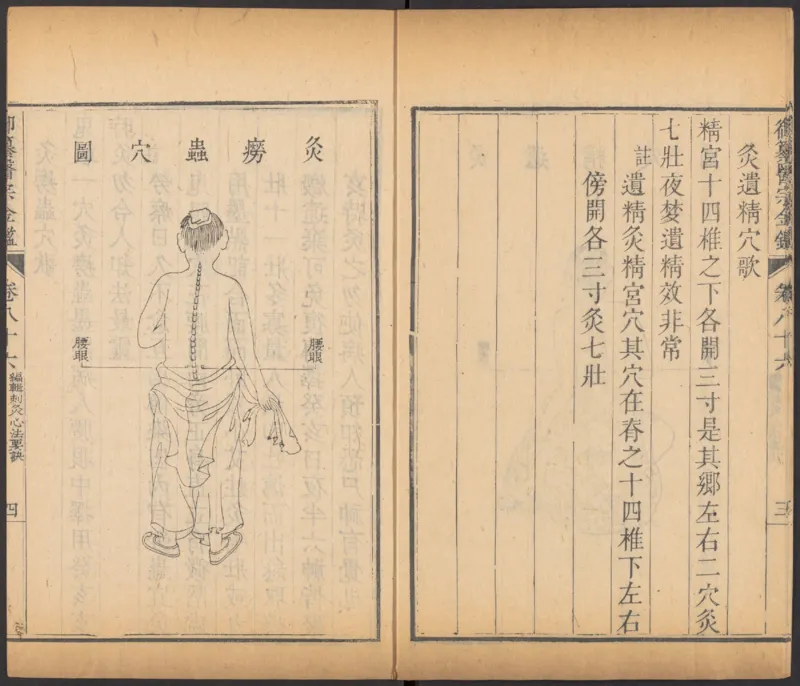 御纂醫宗金鑑
卷八十六
三
灸遺精穴歌
精宮十四椎之下各開三寸是其鄉左右二穴灸
七壯夜夢遺精效非常
註
遺精灸精宮穴其穴在脊之十四椎下左右
傍開各三寸灸七壯
灸癆蟲穴圖
腰眼
腰眼
御纂醫宗金鑑
卷八十六
編輯刺灸心法要訣
四